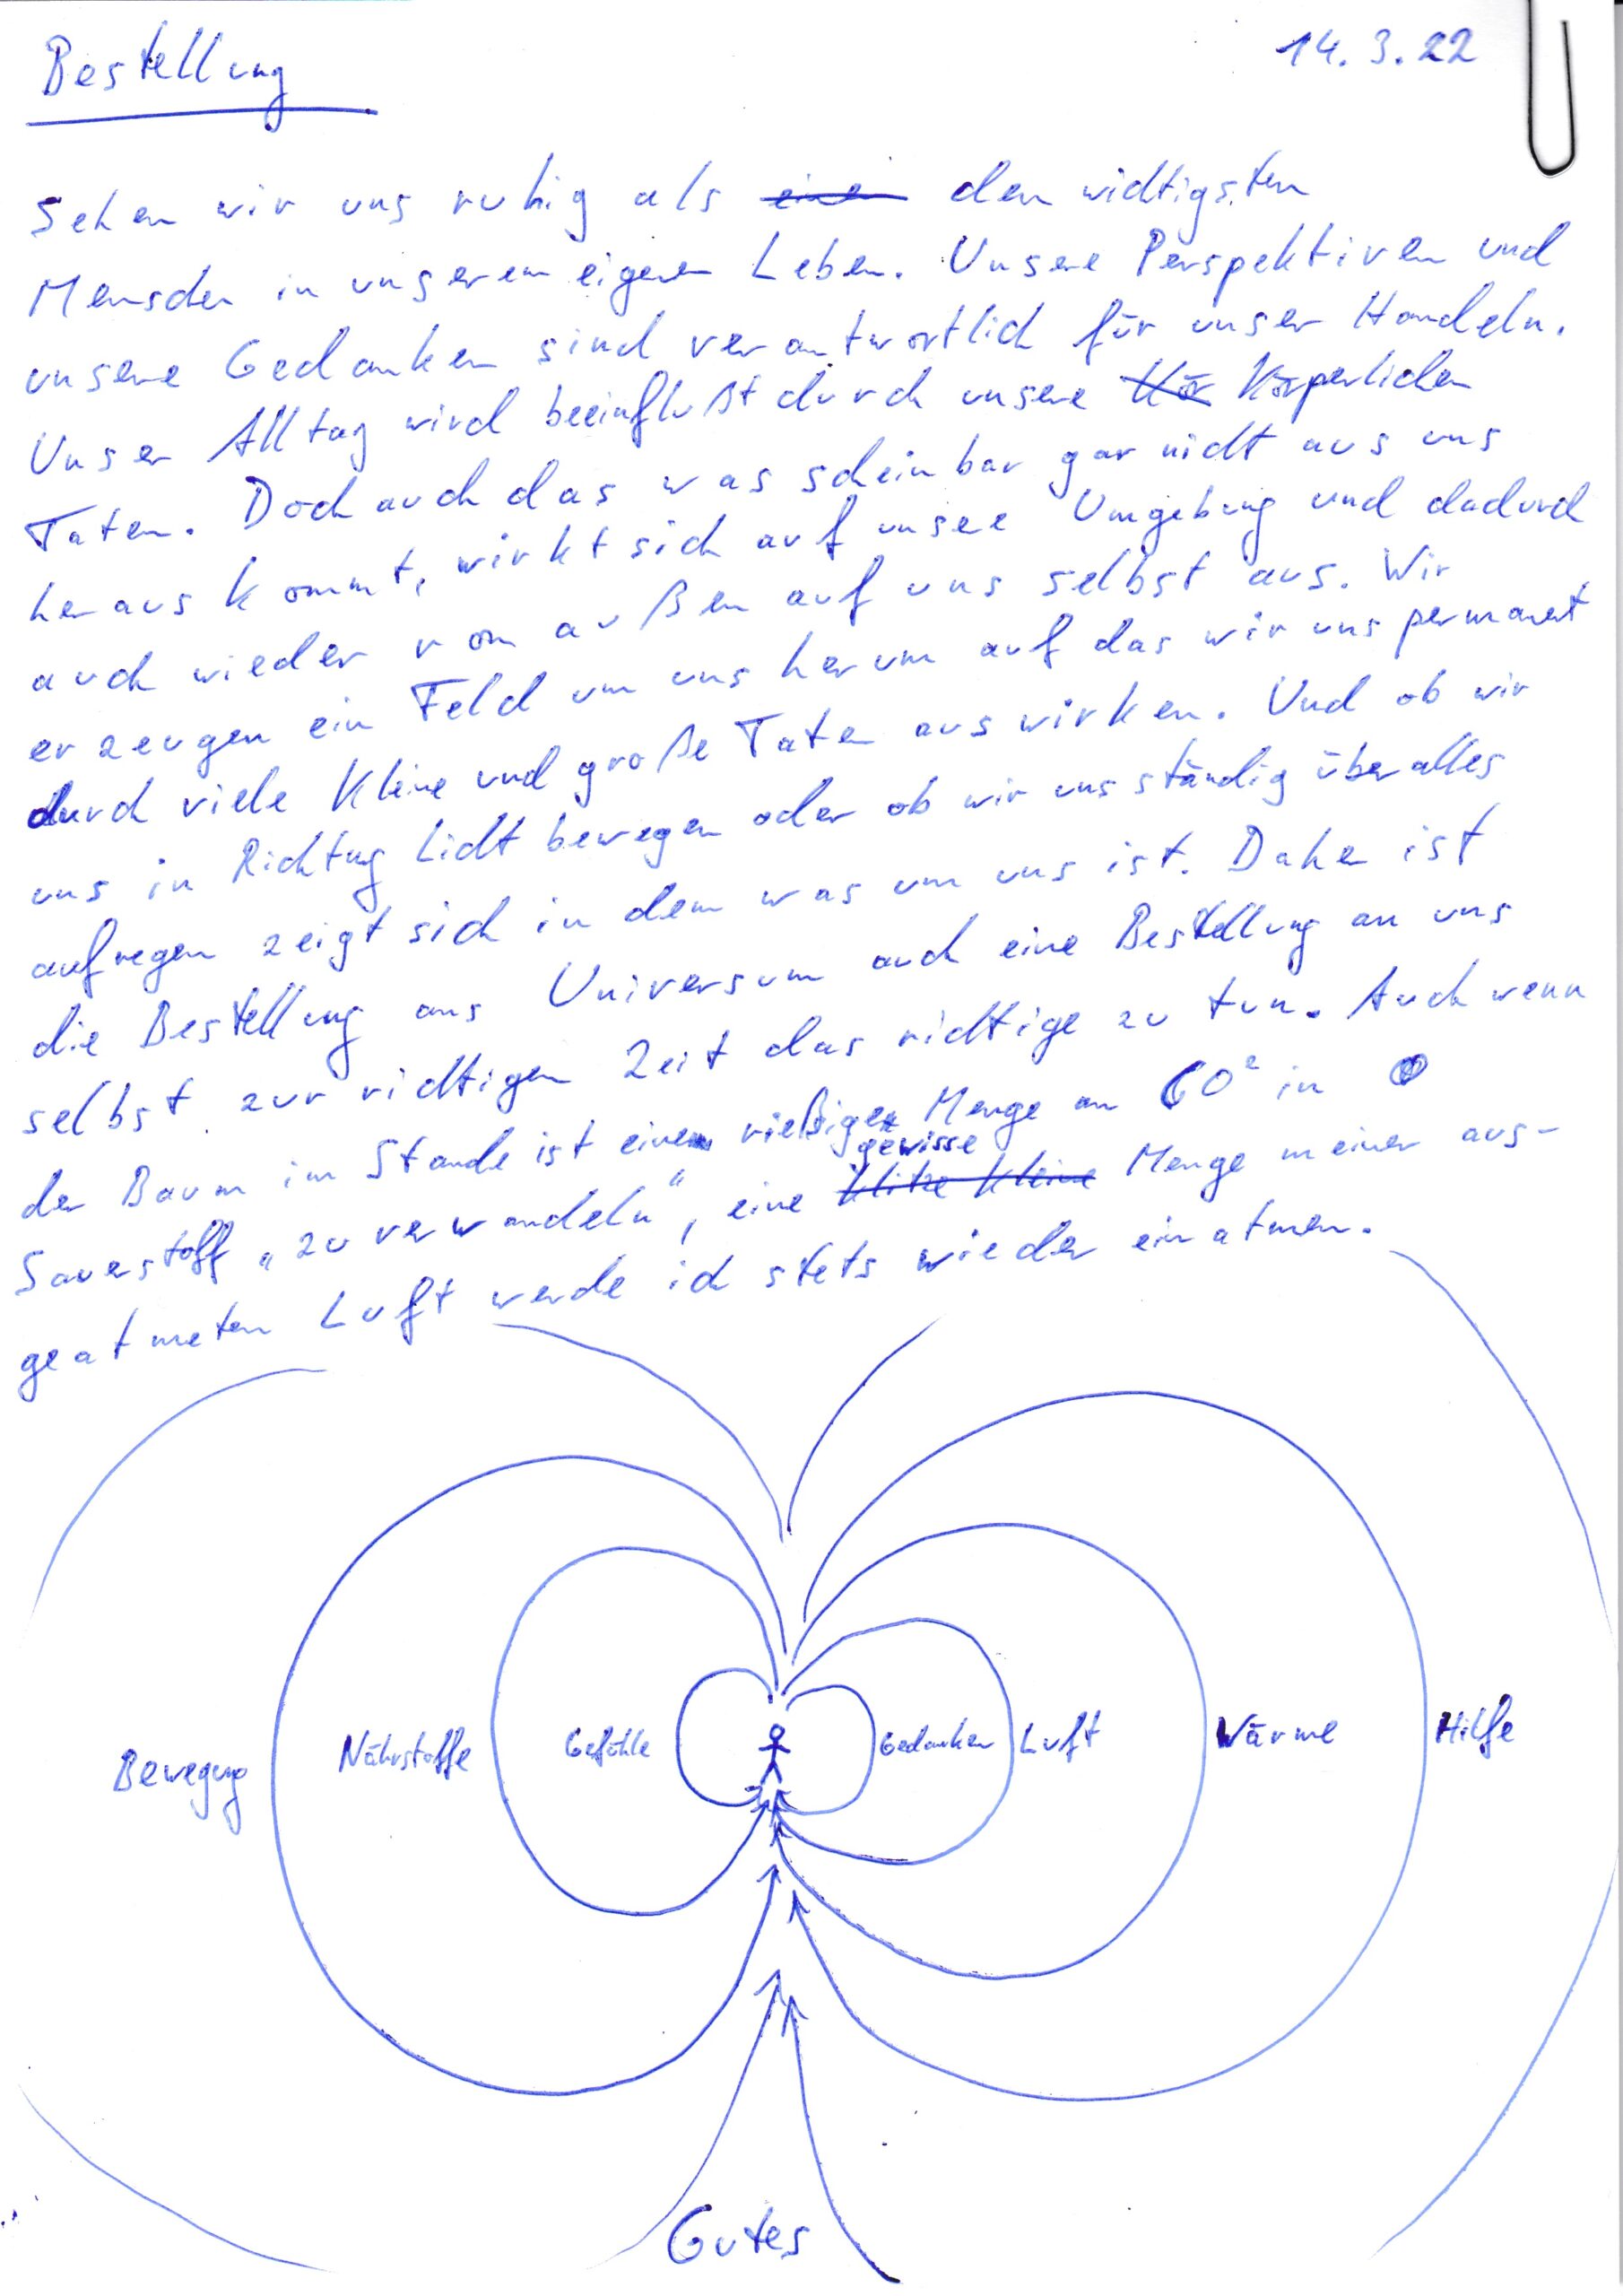 Bestellung
14.3.22
Sehen wir uns ruhig als einen den wichtigsten
Menschen in unserem eigenen Leben. Unsere Perspektiven und
unsere Gedanken sind verantwortlich für unser Handeln.
Unser Alltag wird beeinflußt durch unsere Kör Körperlichen
Taten. Doch auch das was scheinbar gar nicht aus uns
heraus kommt, wirkt sich auf unsee Umgebung und dadurch
auch wieder von außen auf uns selbst aus. Wir
erzeugen ein Feld um uns herum auf das wir uns permanent
durch viele Kleine und große Taten auswirken. Und ob wir
uns in Richtung Licht bewegen oder ob wir uns ständig über alles
aufregen zeigt sich in dem was um uns ist. Daher ist
die Bestellung ans Universum auch eine Bestellung an uns
selbst zur richtigen Zeit das richtige zu tun. Auch wenn
der Baum im Stande ist eine rießige Menge an CO² in
gewisse
Sauerstoff „zu verwandeln“, eine klitze kleine Menge meiner aus-
geatmeten Luft werde ich stets wieder einatmen.
Bewegung Nährstoffe Gefühle Gedanken Luft Wärme Hilfe
Gutes